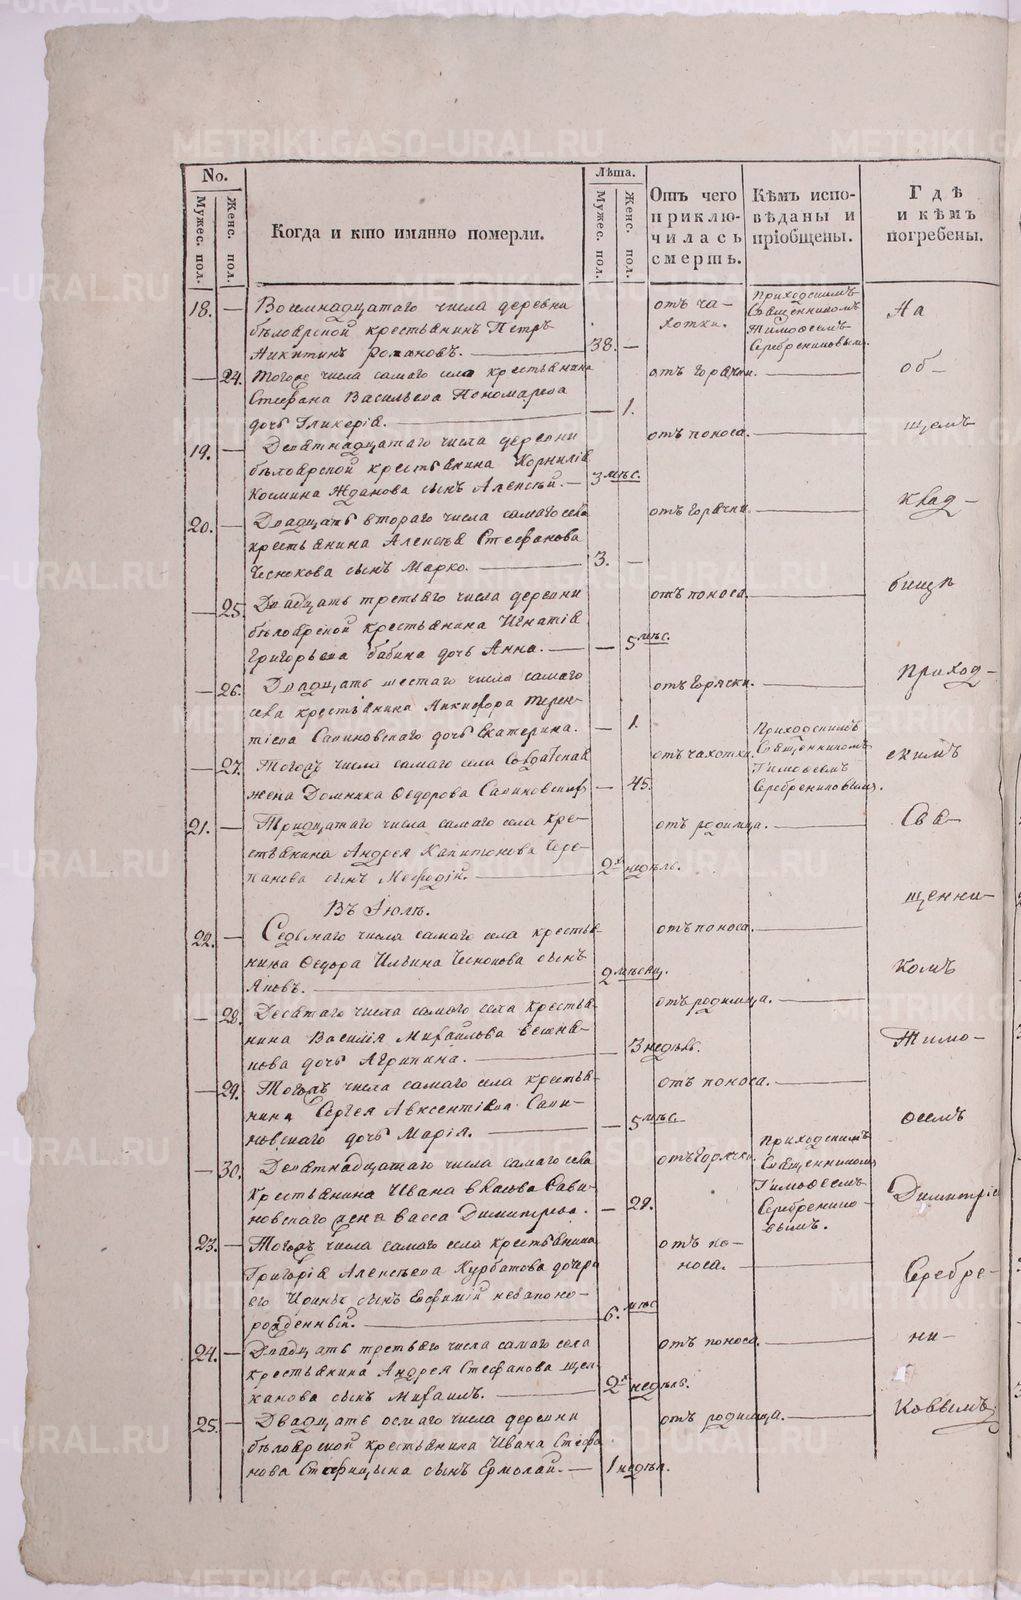 No.
Мужес. пол.
Женс. пол.
Когда и кто имянно померли.
Лѣта.
Мужес. пол.
Женс. пол.
Отъ чего
приклю-
чилась
смерть.
Кѣмъ испо-
вѣданы и
пріобщены.
Гдѣ
и кѣмъ
погребены.
18. — Восемнадцатаго числа деревни
бѣлоярской крестьянинъ Петръ
Никитинъ Романовъ. — 38. —
отъ ча-
хотки.
Приходскимъ
Священникомъ
Тимоѳеемъ
Серебрениковымъ.
— 24. Тогоже числа самаго села крестьянина
Стефана Васильева Пономарева
дочь Гликерія. — 1.
отъ горячки.
19. — Девятнадцатаго числа деревни
бѣлоярской крестьянина Корнилія
Космина Жданова сынъ Алексѣй. — 3 мѣс.
отъ поноса.
20. — Двадцать втораго числа самаго села
крестьянина Алексѣя Стефанова
Чеснокова сынъ Марко. — 3. —
отъ горячки.
— 25. Двадцать третьяго числа деревни
бѣлоярской крестьянина Игнатія
Григорьева бабина дочь Анна. — 5 мѣс.
отъ поноса.
— 26. Двадцать шестаго числа самаго
села крестьянина Никифора Терен-
тіева Савиновскаго дочь Екатерина. — 1.
отъ горячки.
— 27. Тогожъ числа самаго села Солдатская
жена Домника Ѳедорова Савиновских — 45.
отъ чахотки.
Приходскимъ
Священникомъ
Тимоѳеемъ
Серебрениковымъ.
21. — Тридцатаго числа самаго села кре-
стьянина Андрея Капитонова Сте-
панова сынъ Меѳодій. — 2х недѣль.
отъ родимца.
Въ Іюлѣ.
22. — Седьмаго числа самаго села крестья-
нина Ѳедора Ильина Чеснокова сынъ
Яковъ. — 2 мѣсяц.
отъ поноса.
— 28. Десятаго числа самаго села крестья-
нина Василія Михайлова Вешня-
кова дочь Агрипина. — 3 недѣль.
отъ родимца.
— 29. Тогожъ числа самаго села крестья-
нина Сергея Авксентіева Сави-
новскаго дочь Марія. — 5 мѣс.
отъ поноса.
— 30. Девятнадцатаго числа самаго села
крестьянина Ивана Власова Сави-
новскаго жена Васса Димитрева. — 29.
отъ горячки.
Приходскимъ
Священникомъ
Тимоѳеемъ
Серебренико-
вымъ.
23. — Тогожъ числа самаго села крестьянина
Григорія Алексѣева Курбатова дочери
его Ирины сынъ Евфимій незаконо-
рожденный. — 6. мѣс.
отъ по-
носа.
24. — Двадцать третьяго числа самаго села
крестьянина Андрея Стефанова Щел-
канова сынъ Михаилъ. — 2х недѣль.
отъ поноса.
25. — Двадцать осмаго числа деревни
бѣлоярской крестьянина Ивана Стефа-
нова сынъ Ермолай. — 1 недѣл.
отъ родимца.
На
об-
щемъ
клад-
бищѣ
приход-
скимъ
Свя-
щенни-
комъ
Тимо-
ѳеемъ
Димитріе
Серебре-
ни-
ковымъ.
METRIKI.GASO-URAL.RU